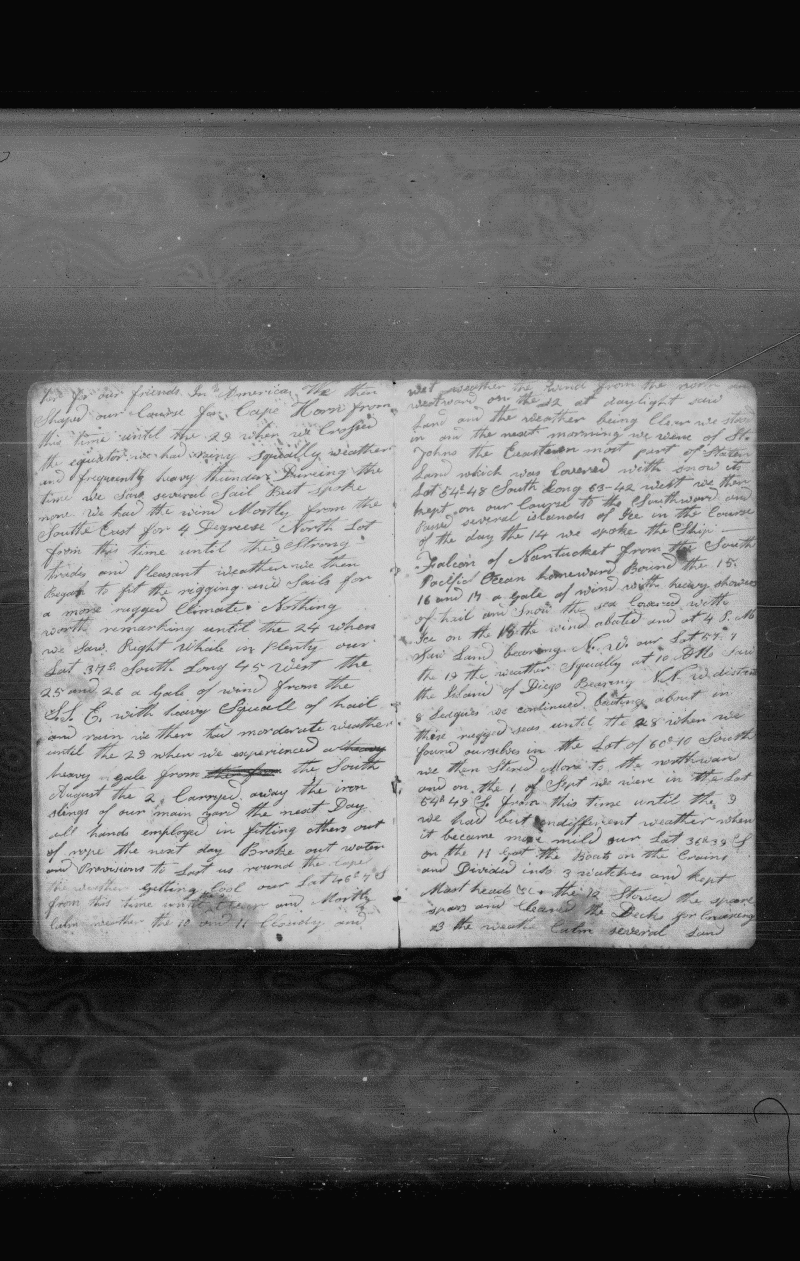 for our friends In America We then
Shaped our Course for Cape Horn from
this time until the 29 when we Crossed
the equator we had rainy Squally weather
and frequently heavy thunder During the
time we Saw several Sail But spoke
none we had the wind Mostly from the
South East for 4 Degreese North Lat
from this time until the Strong
trides and Pleasant weather we then
Began to fit the rigging and Sails for
a more rugged Climate Nothing
worth remarking until the 24 when
we Saw Right Whale in Plenty our
Lat 37 South Long 45 West the
25 and 26 a gale of wind from the
S.S. E. with heavy Squall of hail
and rain we then had morderate weather
until the 29 when we experienced a heavy
heavy gale from the South
August the 2 Carried away the iron
slings of our main yard the next Day
all hands employed in fitting others out
of rope the next day Broke out water
and Provisions to Last us round the cape
the weather getting Cool our Lat 46 7 S
from this time until and Mostly
Calm weather the 10 and 11 Cloudy and
wet weather the wind from the north and
westward on the 12 at daylight saw
Land and the weather being Clear we stood
in and the next morning we were of St.
Johns the Eastern most part of Staten
Land which was Covered with snow its
Lat 54 48 South Long 63-42 west we then
kept on our Course to the Southward and
Passed several islands of Ice in the Course
of the day the 14 we spoke the Ship
Falcon of Nantucket from the South
Pacific Ocean homeward Bound the 15
16 and 17 a gale of wind with heavy showers
of hail and Snow the sea Covered with
Ice on the 18 the wind abated and at 4 P. M
Saw Land bearing N. W our Lat 57. 7
the 19 the weather Squally at 10 AM Saw
the Island of Diego Bearing N.N.W distan
8 Leagues we continued beating about in
these rugged seas until the 28 when we
found ourselves in the Lat of 60 10 South
we then Stered More to the northward
and on the 1 of Sept we were in the Lat
54 49 S. from this time until the 9
we had but indifferent weather when
it became more mild our Lat 36 39 S
on the 11 got the Boats on the Crains
and Divided into 3 watches and kept
Mast heads the 12 Stowed the spare
spars and Cleared the Decks for
13 the weather Calm several